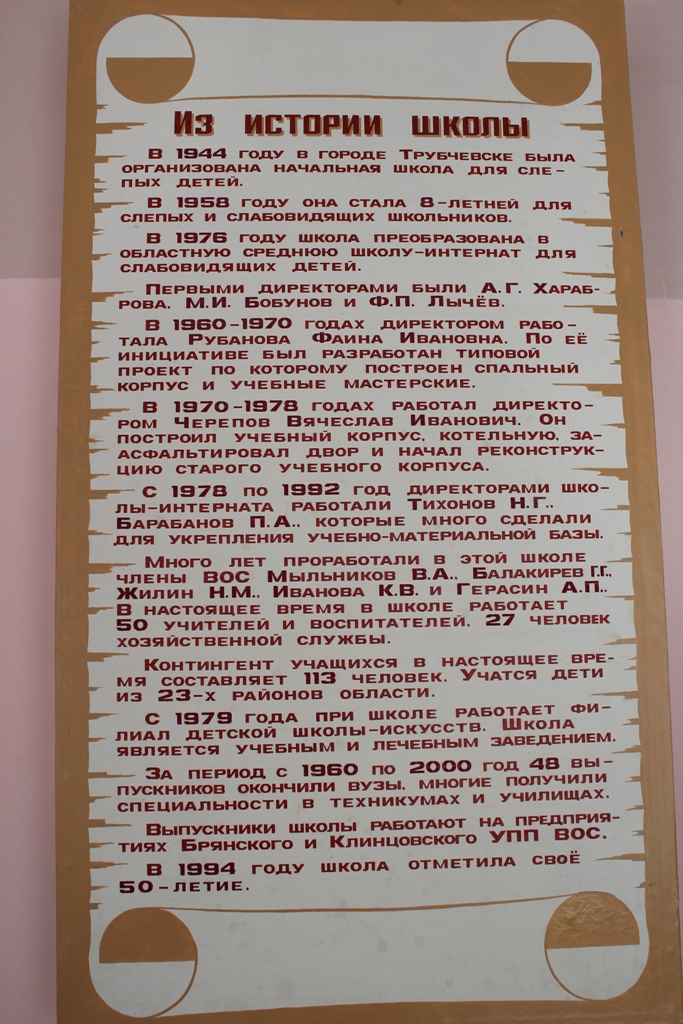 Из истории школы
В 1944 году в городе Трубчевске была
организована начальная школа для сле-
пых детей.
В 1958 году она стала 8-летней для
слепых и слабовидящих школьников.
В 1976 году школа преобразована в
областную среднюю школу-интернат для
слабовидящих детей.
Первыми директорами были А.Г. Хараб-
рова, М.И. Бобунов и Ф.П. Лычёв.
В 1960-1970 годах директором рабо-
тала Рубанова Фаина Ивановна. По её
инициативе был разработан типовой
проект по которому построен спальный
корпус и учебные мастерские.
В 1970-1978 годах работал директо-
ром Черепов Вячеслав Иванович. Он
построил учебный корпус, котельную, за-
асфальтировал двор и начал реконструк-
цию старого учебного корпуса.
С 1978 по 1992 год директорами шко-
лы-интерната работали Тихонов Н.Г.,
Барабанов П.А., которые много сделали
для укрепления учебно-материальной базы.
Много лет проработали в этой школе
члены ВОС Мыльников В.А., Балакирев Г.Г.,
Жилин Н.М., Иванова К.В. и Герасин А.П..
В настоящее время в школе работает
50 учителей и воспитателей, 27 человек
хозяйственной службы.
Контингент учащихся в настоящее вре-
мя составляет 113 человек. Учатся дети
из 23-х районов области.
С 1979 года при школе работает фи-
лиал детской школы-искусств. Школа
является учебным и лечебным заведением.
За период с 1960 по 2000 год 48 вы-
пускников окончили вузы, многие получили
специальности в техникумах и училищах.
Выпускники школы работают на предприя-
тиях Брянского и Клинцовского УПП ВОС.
В 1994 году школа отметила своё
50-летие.